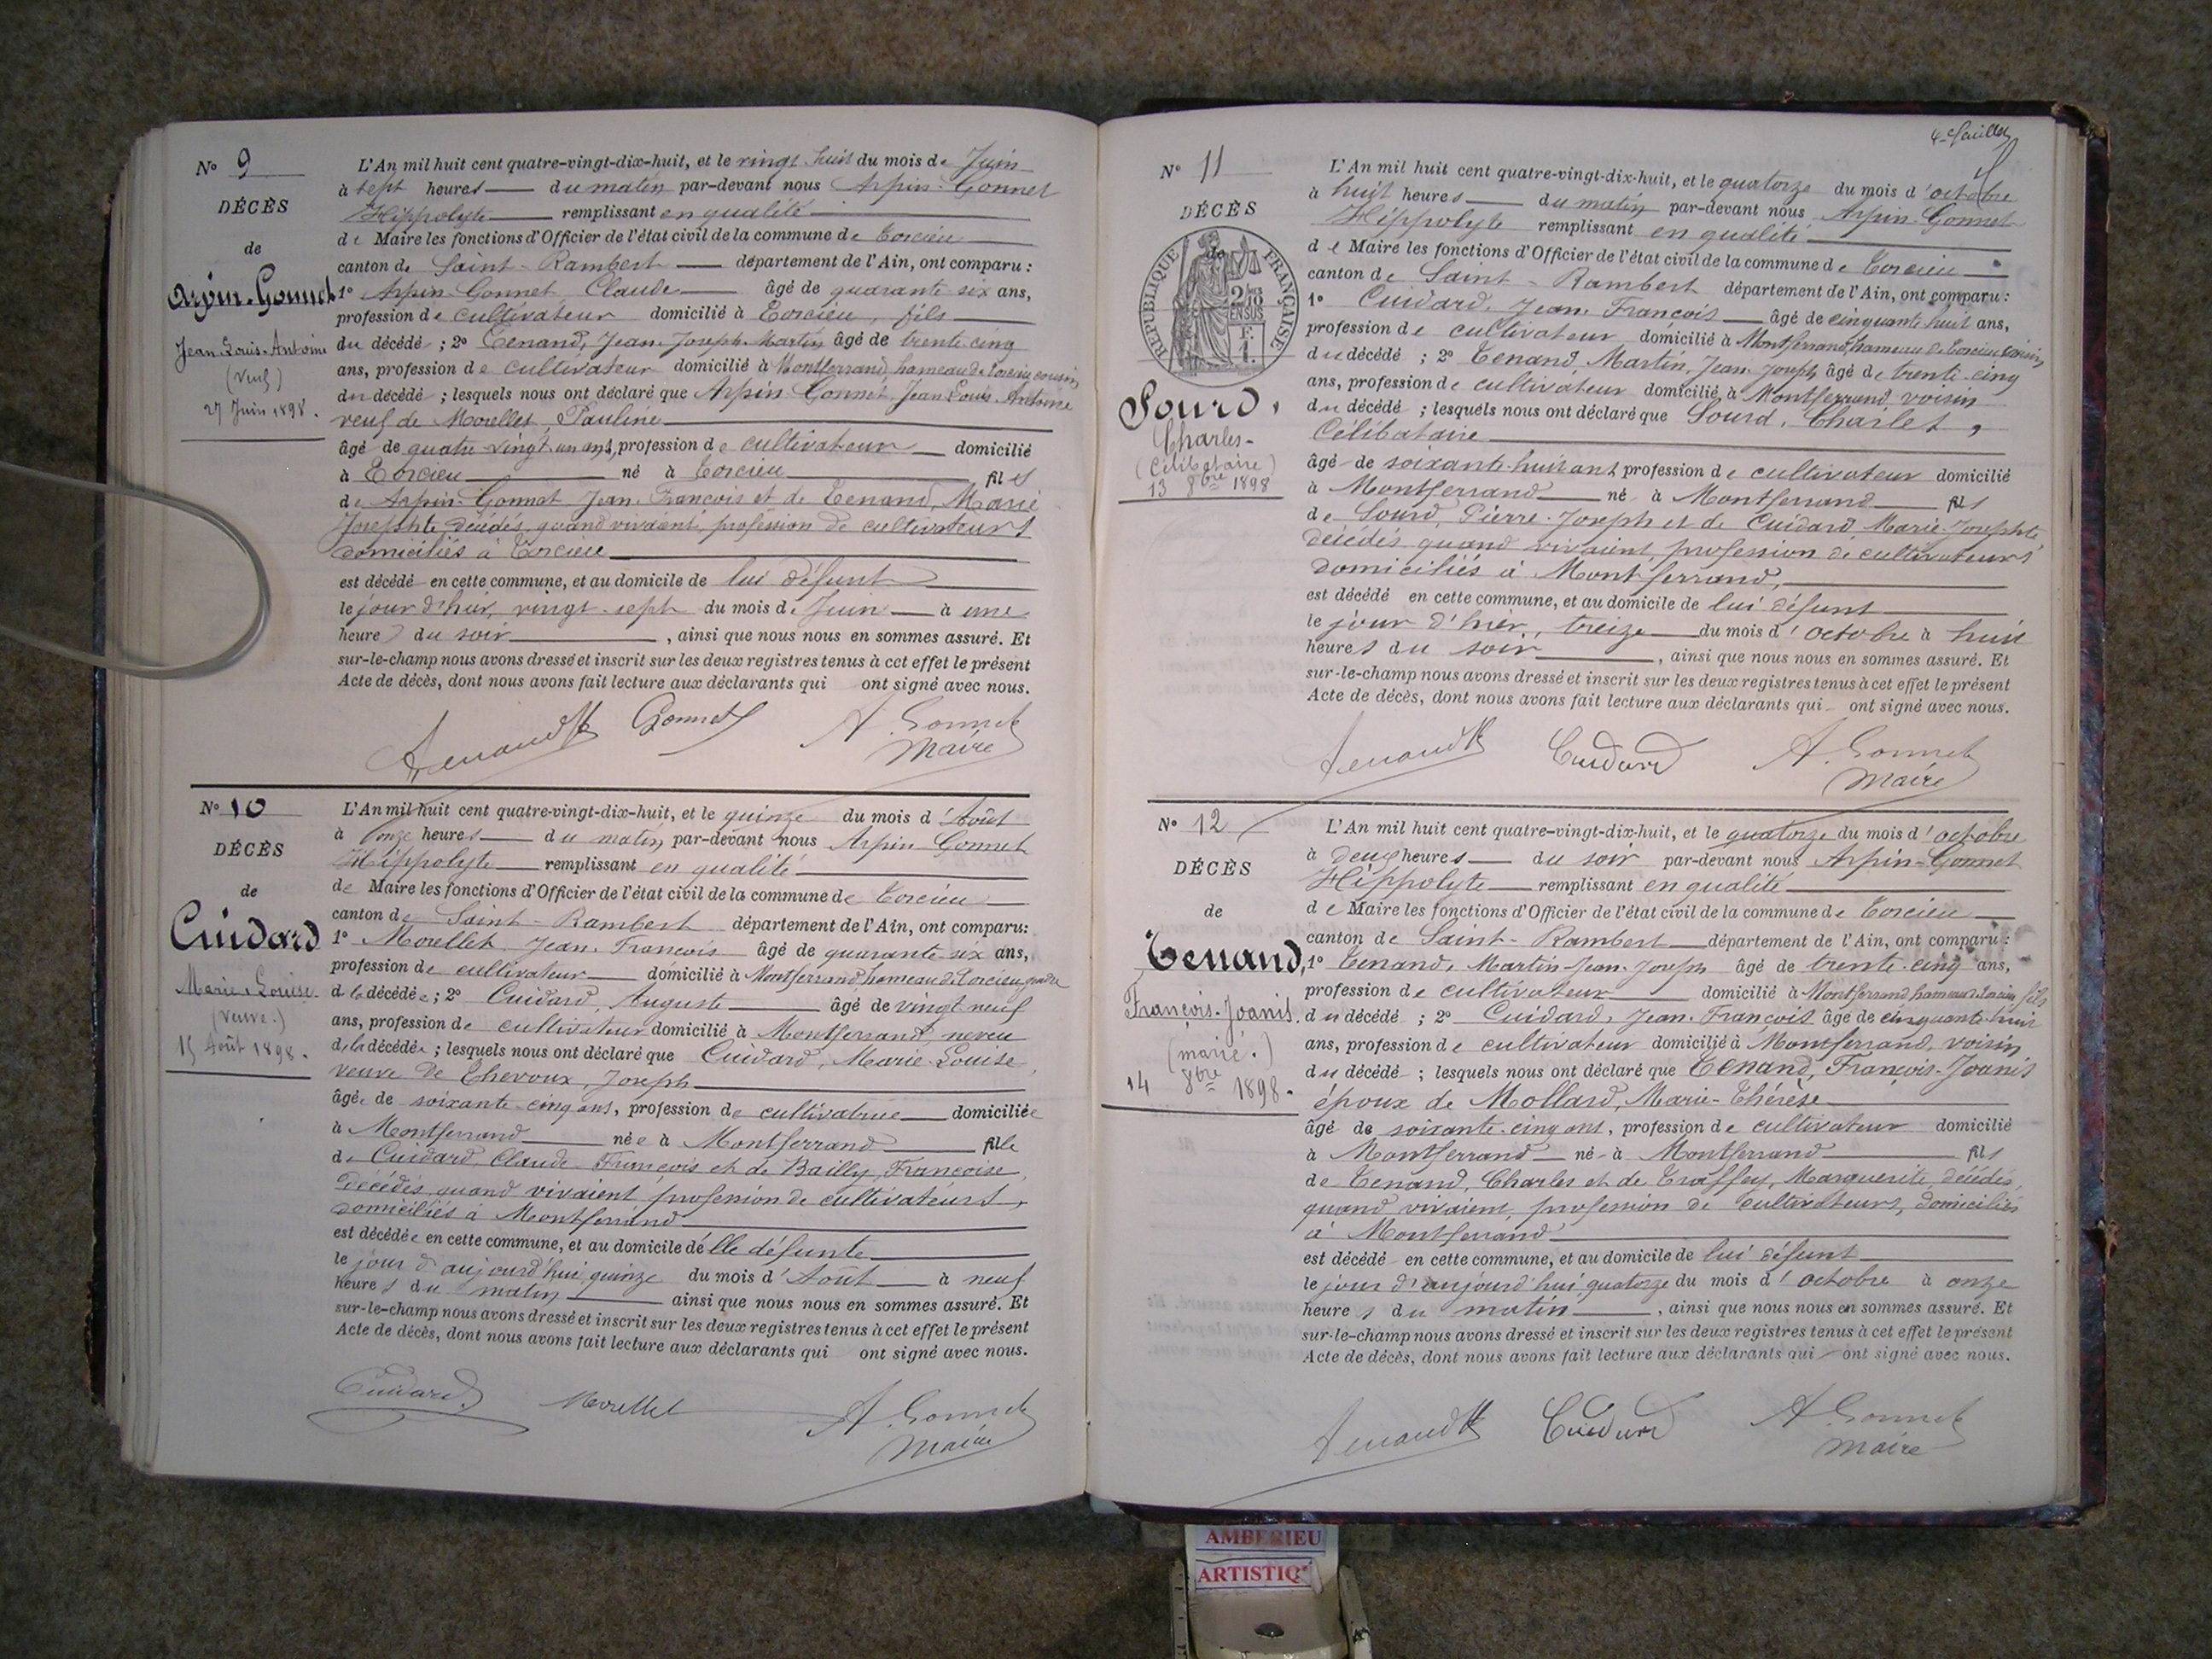 N° 9
DÉCÈS
de
Arpin-Gonnet
Jean-Louis-Antoine
(veuf)
27 Juin 1898.
L'An mil huit cent quatre-vingt-dix-huit, et le vingt huit du mois de Juin
à sept heures du matin par-devant nous Arpin-Gonnet
Hippolyte remplissant en qualité
de Maire les fonctions d'Officier de l'état civil de la commune de Torcieu
canton de Saint-Rambert département de l'Ain, ont comparu :
1° Arpin-Gonnet, Claude âgé de quarante six ans,
profession de cultivateur domicilié à Torcieu, fils
du décédé ; 2° Tenand, Jean-Joseph-Martin âgé de trente cinq
ans, profession de cultivateur domicilié à Montferrand, hameau de Torcieu cousin
du décédé ; lesquels nous ont déclaré que Arpin-Gonnet Jean Louis Antoine
veuf de Morellet, Pauline
âgé de quatre vingt un ans, profession de cultivateur domicilié
à Torcieu né à Torcieu fils
de Arpin-Gonnet Jean-François et de Tenand, Marie
Josephte décédés, quand vivaient, profession de cultivateurs
domiciliés à Torcieu
est décédé en cette commune, et au domicile de lui défunt
le jour d'hier, vingt-sept du mois de Juin à une
heure du soir , ainsi que nous nous en sommes assuré. Et
sur-le-champ nous avons dressé et inscrit sur les deux registres tenus à cet effet le présent
Acte de décès, dont nous avons fait lecture aux déclarants qui ont signé avec nous.
Gonnet A. Gonnet
Maire
N° 10
DÉCÈS
de
Cuidard
Marie-Louise
(veuve.)
15 Août 1898.
L'An mil huit cent quatre-vingt-dix-huit, et le quinze du mois d'Août
à onze heures du matin par-devant nous Arpin-Gonnet
Hippolyte remplissant en qualité
de Maire les fonctions d'Officier de l'état civil de la commune de Torcieu
canton de Saint-Rambert département de l'Ain, ont comparu :
1° Morellet Jean-François âgé de quarante six ans,
profession de cultivateur domicilié à Montferrand, hameau de Torcieu, gendre
de la décédée ; 2° Cuidard, Auguste âgé de vingt neuf
ans, profession de cultivateur domicilié à Montferrand, neveu
de la décédée ; lesquels nous ont déclaré que Cuidard, Marie-Louise,
veuve de Chevoux, Joseph
âgée de soixante-cinq ans, profession de cultivatrice domiciliée
à Montferrand née à Montferrand fille
de Cuidard, Claude-François et de Bailly, Françoise,
décédés quand vivaient profession de cultivateurs,
domiciliés à Montferrand
est décédée en cette commune, et au domicile d'elle défunte
le jour d'aujourd'hui quinze du mois d'Août à neuf
heures du matin ainsi que nous nous en sommes assuré. Et
sur-le-champ nous avons dressé et inscrit sur les deux registres tenus à cet effet le présent
Acte de décès, dont nous avons fait lecture aux déclarants qui ont signé avec nous.
Cuidard Morellet A. Gonnet
Maire
4e feuillet
N° 11
DÉCÈS
de
RÉPUBLIQUE FRANÇAISE
Sourd,
Charles-
(Célibataire)
13 8bre 1898
L'An mil huit cent quatre-vingt-dix-huit, et le quatorze du mois d'octobre
à huit heures du matin par-devant nous Arpin-Gonnet
Hippolyte remplissant en qualité
de Maire les fonctions d'Officier de l'état civil de la commune de Torcieu
canton de Saint-Rambert département de l'Ain, ont comparu :
1° Cuidard, Jean-François âgé de cinquante huit ans,
profession de cultivateur domicilié à Montferrand, hameau de Torcieu
du décédé ; 2° Tenand, Martin, Jean-Joseph âgé de trente-cinq
ans, profession de cultivateur domicilié à Montferrand voisin
du décédé ; lesquels nous ont déclaré que Sourd, Charles,
Célibataire
âgé de soixante-huit ans, profession de cultivateur domicilié
à Montferrand né à Montferrand fils
de Sourd, Pierre-Joseph et de Cuidard, Marie-Josephte,
décédés quand vivaient, profession de cultivateurs
domiciliés à Montferrand,
est décédé en cette commune, et au domicile de lui défunt
le jour d'hier, treize du mois d'octobre à huit
heures du soir , ainsi que nous nous en sommes assuré. Et
sur-le-champ nous avons dressé et inscrit sur les deux registres tenus à cet effet le présent
Acte de décès, dont nous avons fait lecture aux déclarants qui ont signé avec nous.
Cuidard A. Gonnet
Maire
N° 12
DÉCÈS
de
Tenand,
François-Joanis.
(marié.)
14 8bre 1898.
L'An mil huit cent quatre-vingt-dix-huit, et le quatorze du mois d'octobre
à deux heures du soir par-devant nous Arpin-Gonnet
Hippolyte remplissant en qualité
de Maire les fonctions d'Officier de l'état civil de la commune de Torcieu
canton de Saint-Rambert département de l'Ain, ont comparu :
1° Tenand, Martin-Jean-Joseph âgé de trente-cinq ans,
profession de cultivateur domicilié à Montferrand hameau de Torcieu, fils
du décédé ; 2° Cuidard, Jean-François âgé de cinquante-huit
ans, profession de cultivateur domicilié à Montferrand, voisin
du décédé ; lesquels nous ont déclaré que Tenand, François-Joanis
époux de Mollard, Marie-Thérèse
âgé de soixante-cinq ans, profession de cultivateur domicilié
à Montferrand né à Montferrand fils
de Tenand, Charles et de Traffey, Marguerite, décédés,
quand vivaient, profession de cultivateurs, domiciliés
à Montferrand
est décédé en cette commune, et au domicile de lui défunt
le jour d'aujourd'hui quatorze du mois d'octobre à onze
heures du matin , ainsi que nous nous en sommes assuré. Et
sur-le-champ nous avons dressé et inscrit sur les deux registres tenus à cet effet le présent
Acte de décès, dont nous avons fait lecture aux déclarants qui ont signé avec nous.
Cuidard A. Gonnet
Maire
AMBERIEU
ARTISTIQ